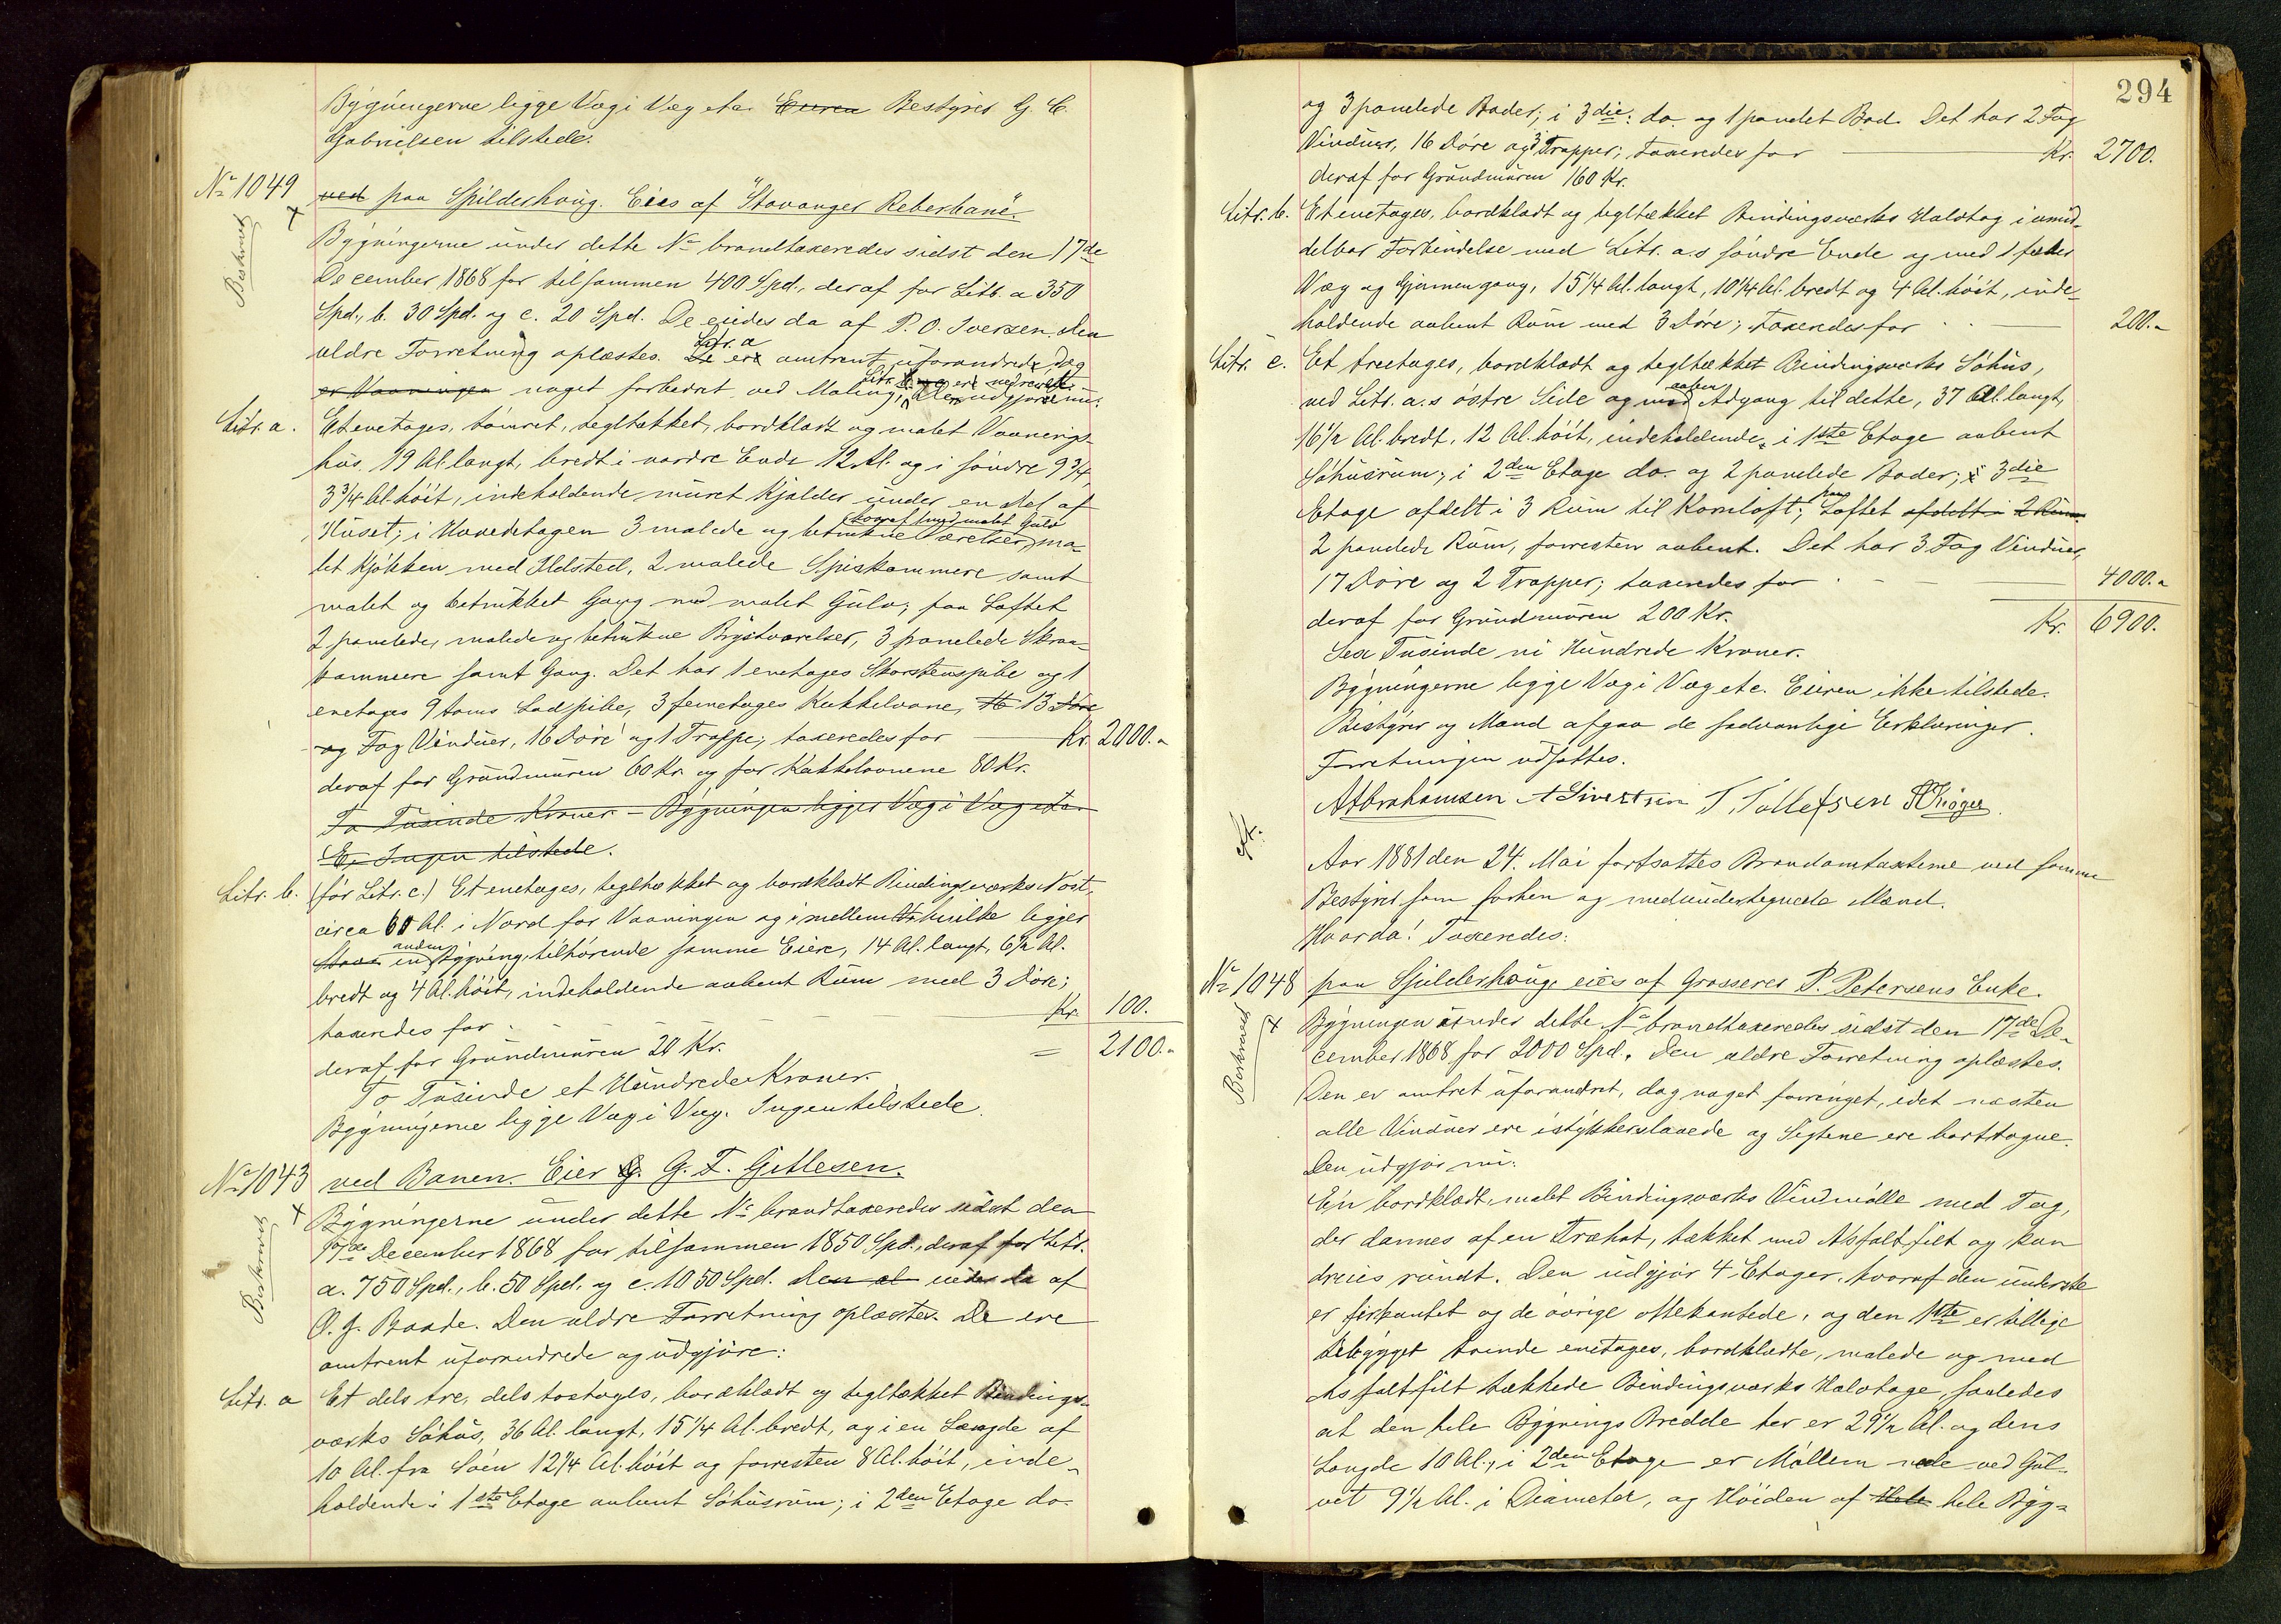 Bygningerne ligge Væg i Væg etc. Eieren Bestyrer G. C.
Gabrielsen tilstede.
No 1049 ved paa Spilderhaug. Eies af "Stavanger Reberbane".
Beskrevet
Bygningerne under dette No brandtaxeredes sidst den 17de
December 1868 for tilsammen 400 Spd., deraf for Litr. a 350
Spd., b. 30 Spd. og c. 20 Spd. De eiedes da af P. O. Iversen. Den
ældre Forretning oplæstes. De ere Litr. a omtrent uforandrede, dog
er Vaaningen noget forbedret ved Maling; Litr. er nedrevet. De udgjøre nu:
Litr. a. Et enetages, tømret, tegltækket, bordklædt og malet Vaanings-
hus, 19 Al. langt, bredt i nordre Ende 12 Al. og i søndre 9 3/4,
3 3/4 Al. høit, indeholdende muret Kjælder under en Del af
Huset; i Hovedetagen 3 malede og betrukne Værelser, hvoraf 1 med malet Gulv, ma-
let Kjøkken med Ildsted, 2 malede Spiskammere samt
malet og betrukket Gang med malet Gulv; paa Loftet
2 panelede, malede og betrukne Brystværelser, 3 panelede Skraa-
kammere samt Gang. Det har 1 enetages Skorstenspibe og 1
enetages 9 toms Ladpibe, 3 femetages Kakkelovne, 16 13 Døre
og Fag Vinduer, 16 Døre og 1 Trappe; taxeredes for Kr. 2000.-
deraf for Grundmuren 60 Kr. og for Kakkelovnene 80 Kr.
To Tusinde Kroner - Bygningen ligger Væg i Væg etc.
E. Ingen tilstede.
Litr. b. (før Litr. c.) Et enetages, tegltækket og bordklædt Bindingsværks Nøst,
circa 60 Al. i Nord for Vaaningen og imellem hvilke ligger
en anden Bygning, tilhørende samme Eiere, 14 Al. langt, 6 1/2 Al.
bredt og 4 Al. høit, indeholdende aabent Rum med 3 Døre;
taxeredes for Kr. 100.
deraf for Grundmuren 20 Kr. = 2100.-
To Tusinde et Hundrede Kroner.
Bygningerne ligge Væg i Væg. Ingen tilstede.
No 1043 ved Banen. Eier G. T. Gitlesen.
Beskrevet
Bygningerne under dette No brandtaxeredes sidst den
17de December 1868 for tilsammen 1850 Spd., deraf for Litr.
a. 750 Spd., b. 50 Spd. og c. 1050 Spd. Den æl eiedes da af
O. J. Baade. Den ældre Forretning oplæstes. De ere
omtrent uforandrede og udgjøre:
Litr. a Et dels tre, dels toetages, bordklædt og tegltækket Bindings-
værks Søhus, 36 Al. langt, 15 1/4 Al. bredt, og i en Længde af
10 Al. fra Søen 12 1/4 Al. høit og forresten 8 Al. høit, inde-
holdende i 1ste Etage aabent Søhusrum; i 2den Etage do.
294
og 3 panelede Boder; i 3die: do. og 1 panelet Bod. Det har 2 Fag
Vinduer, 16 Døre og 3 Trapper; taxeredes for Kr. 2700.
deraf for Grundmuren 160 Kr.
Litr. b. Et enetages, bordklædt og tegltækket Bindingsværks Halvtag i umid-
delbar Forbindelse med Litr. a.s søndre Ende og med 1 fælles
Væg og Gjennemgang, 15 1/4 Al. langt, 10 1/4 Al. bredt og 4 Al. høit, inde-
holdende aabent Rum med 3 Døre; taxeredes for 200.-
Litr. c. Et treetages, bordklædt og tegltækket Bindingsværks Søhus,
ved Litr. a.s østre Side og med aaben Adgang til dette, 37 Al. langt,
16 1/2 Al. bredt, 12 Al. høit, indeholdende i 1ste Etage aabent
Søhusrum; i 2den Etage do. og 2 panelede Boder; i 3die
Etage afdelt i 3 Rum til Kornloft; paa Loftet afdelt i 2 Rum
2 panelede Rum, forresten aabent. Det har 3 Fag Vinduer,
17 Døre og 2 Trapper; taxeredes for 4000.-
deraf for Grundmuren 200 Kr. Kr. 6900.
Sex Tusinde ni Hundrede Kroner.
Bygningerne ligge Væg i Væg etc. Eieren ikke tilstede.
Bestyrer og Mænd afgav de sædvanlige Erklæringer.
Forretningen udsattes.
A Abrahamsen A Sivertsen T. Tollefsen
Aar 1881 den 24. Mai fortsattes Brandomtaxterne ved samme
Bestyrer som forhen og medundertegnede Mænd.
Hvorda! Taxeredes:
No 1048 paa Spilderhaug, eies af Grosserer P. Petersens Enke.
Beskrevet
Bygningen under dette No brandtaxeredes sidst den 17de De-
cember 1868 for 2000 Spd. Den ældre Forretning oplæstes.
Den er omtret uforandret, dog noget forringet, idet næsten
alle Vinduer ere istykkerslaaede og Sigtene ere borttagne.
Den udgjør nu:
En bordklædt, malet Bindingsværks Vindmølle med Tag,
der dannes af en Træhat, tækket med Asfaltfilt og kan
dreies rundt. Den udgjør 4 Etager, hvoraf den underste
er firkantet og de øvrige ottekantede, og den 1ste er tillige
tilbygget tvende enetages, bordklædte, malede og med
Asfaltfilt tækkede Bindingsværks Halvtage, saaledes
at den hele Bygnings Bredde her er 29 1/2 Al. og dens
Længde 10 Al., i 2den Etage er Møllen nede ved Gul-
vet 9 1/2 Al. i Diameter, og Høiden af Hele hele Byg-